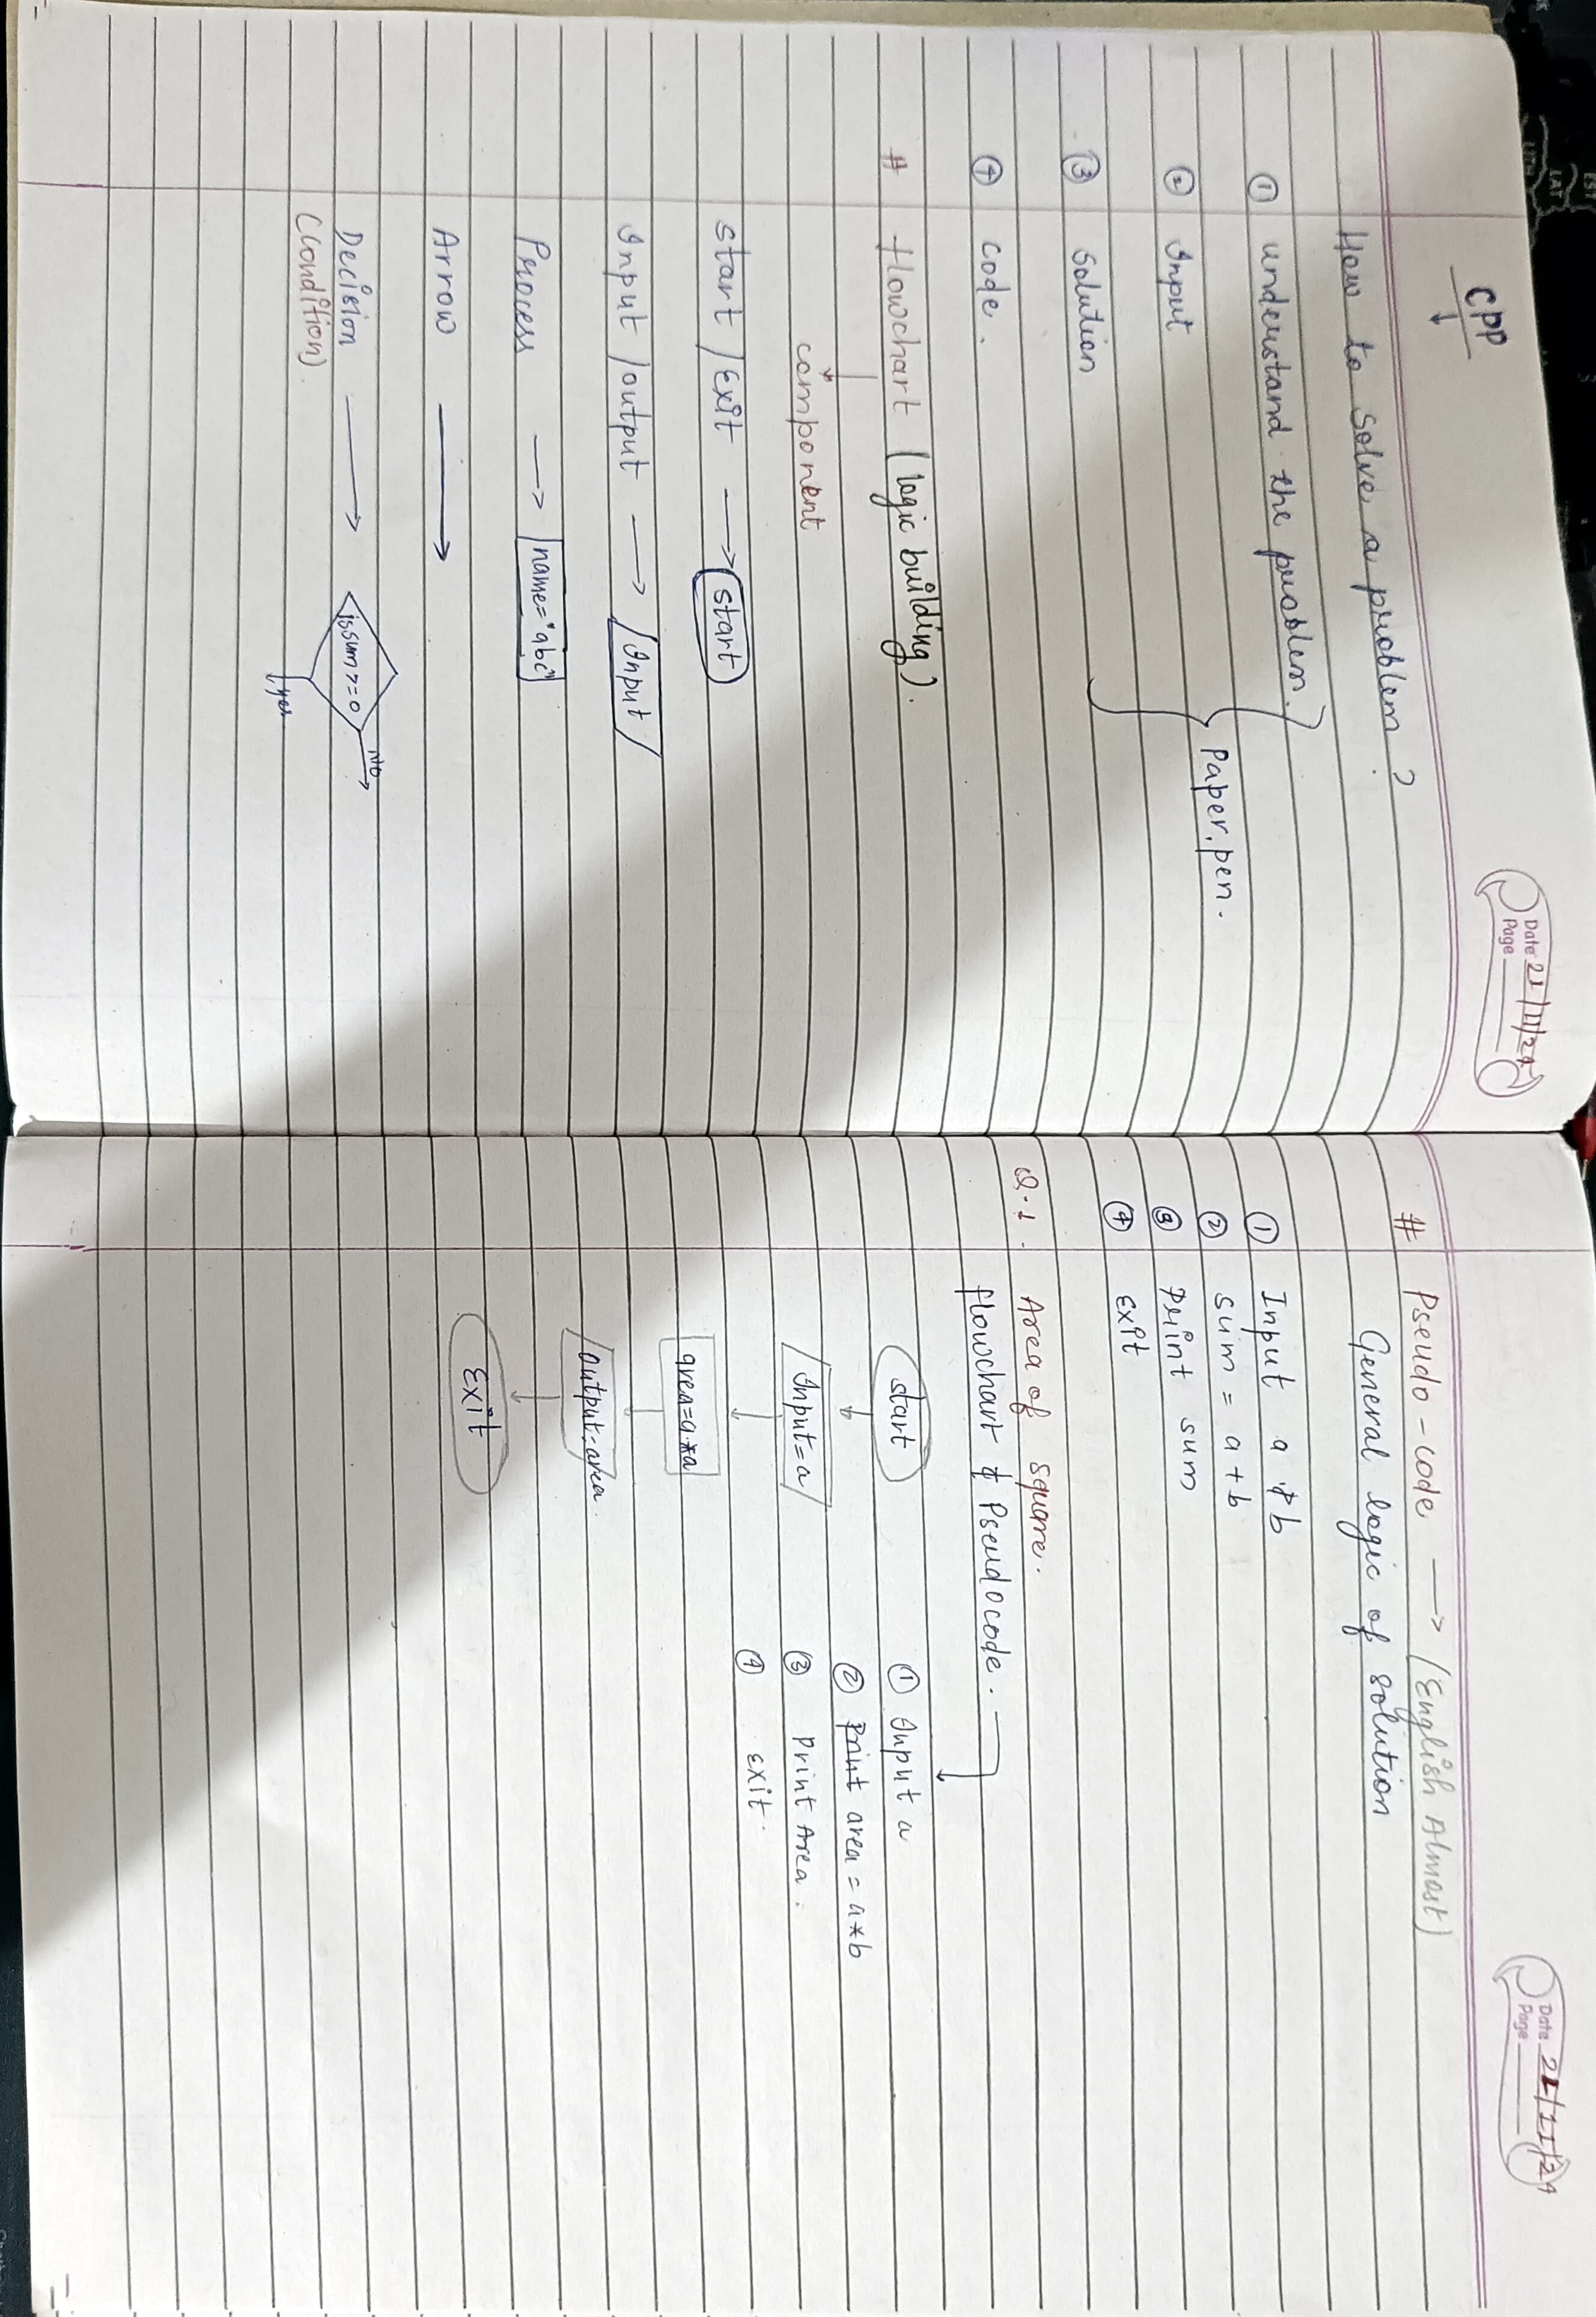 cpp
Date 21/11/24
Page
How to solve a problem?
① understand the problem.
② Input
Paper, pen.
③ Solution
④ code.
# flowchart (logic building).
component
start/Exit → start
Input/output → Input
Process → name="abc"
Arrow →
Decision → is sum >= 0 no →
(Condition).
yes
Date 21/11/24
Page
# Pseudo-code → (English Almost)
General logic of solution
① Input a & b
② sum = a + b
③ Print sum
④ Exit
Q.1. Area of square.
flowchart & Pseudocode.
start
Input=a
area=a*a
output=area
Exit
① Input a
② Print area = a*b
③ Print Area.
④ Exit.